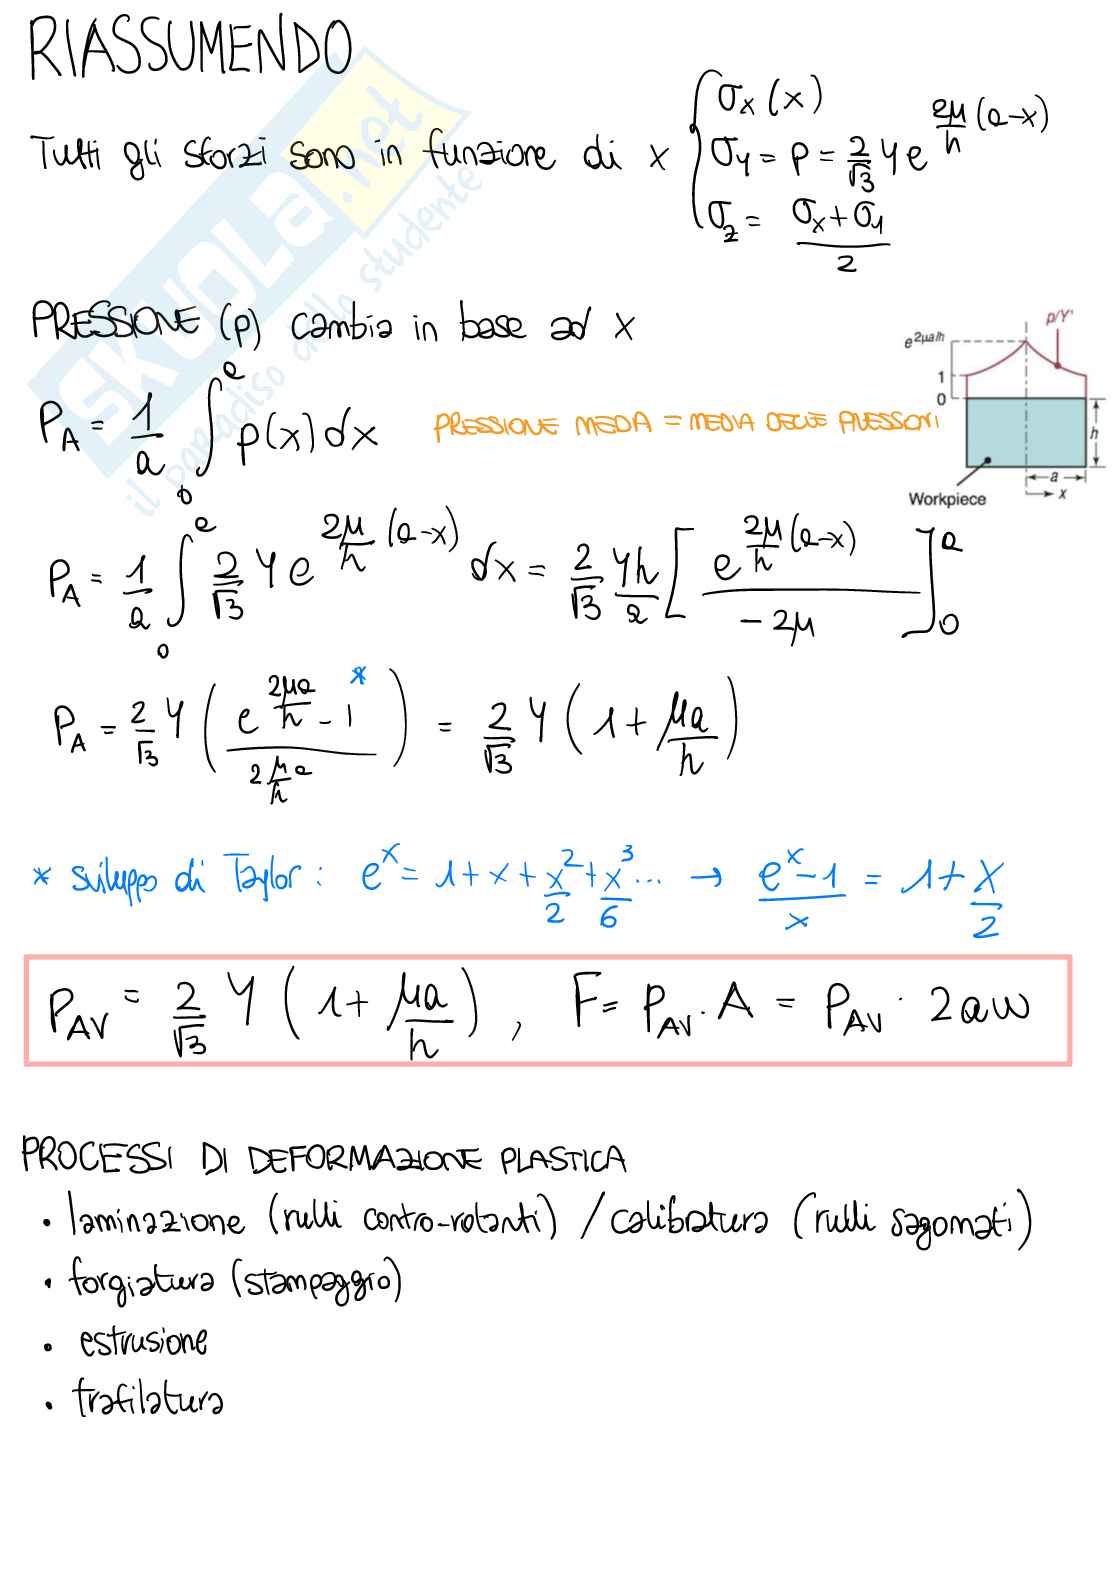 RIASSUMENDO
Tutti gli sforzi sono in funzione di x { σx (x)
σy = p = 2/√3 Y e^(2μ/h (a-x))
σz = (σx + σy)/2
PRESSIONE (p) cambia in base ad x
P_A = 1/a ∫₀^a p(x) dx
PRESSIONE MEDIA = MEDIA DELLE PRESSIONI
p/Y'
e^2μa/h
1
0
h
a
x
Workpiece
P_A = 1/a ∫₀^a 2/√3 Y e^(2μ/h (a-x)) dx = 2/√3 Yh/a [ e^(2μ/h (a-x)) / -2μ ]₀^a
P_A = 2/√3 Y ( (e^(2μa/h) - 1)* / (2 μ/h a) ) = 2/√3 Y ( 1 + μa/h )
* sviluppo di Taylor : e^x = 1 + x + x²/2 + x³/6 ... → (e^x - 1)/x = 1 + x/2
P_AV = 2/√3 Y ( 1 + μa/h ) , F = P_AV · A = P_AV · 2aw
PROCESSI DI DEFORMAZIONE PLASTICA
• laminazione (rulli contro-rotanti) / calibratura (rulli sagomati)
• forgiatura (stampaggio)
• estrusione
• trafilatura
SKUOLA.net
il paradiso dello studente